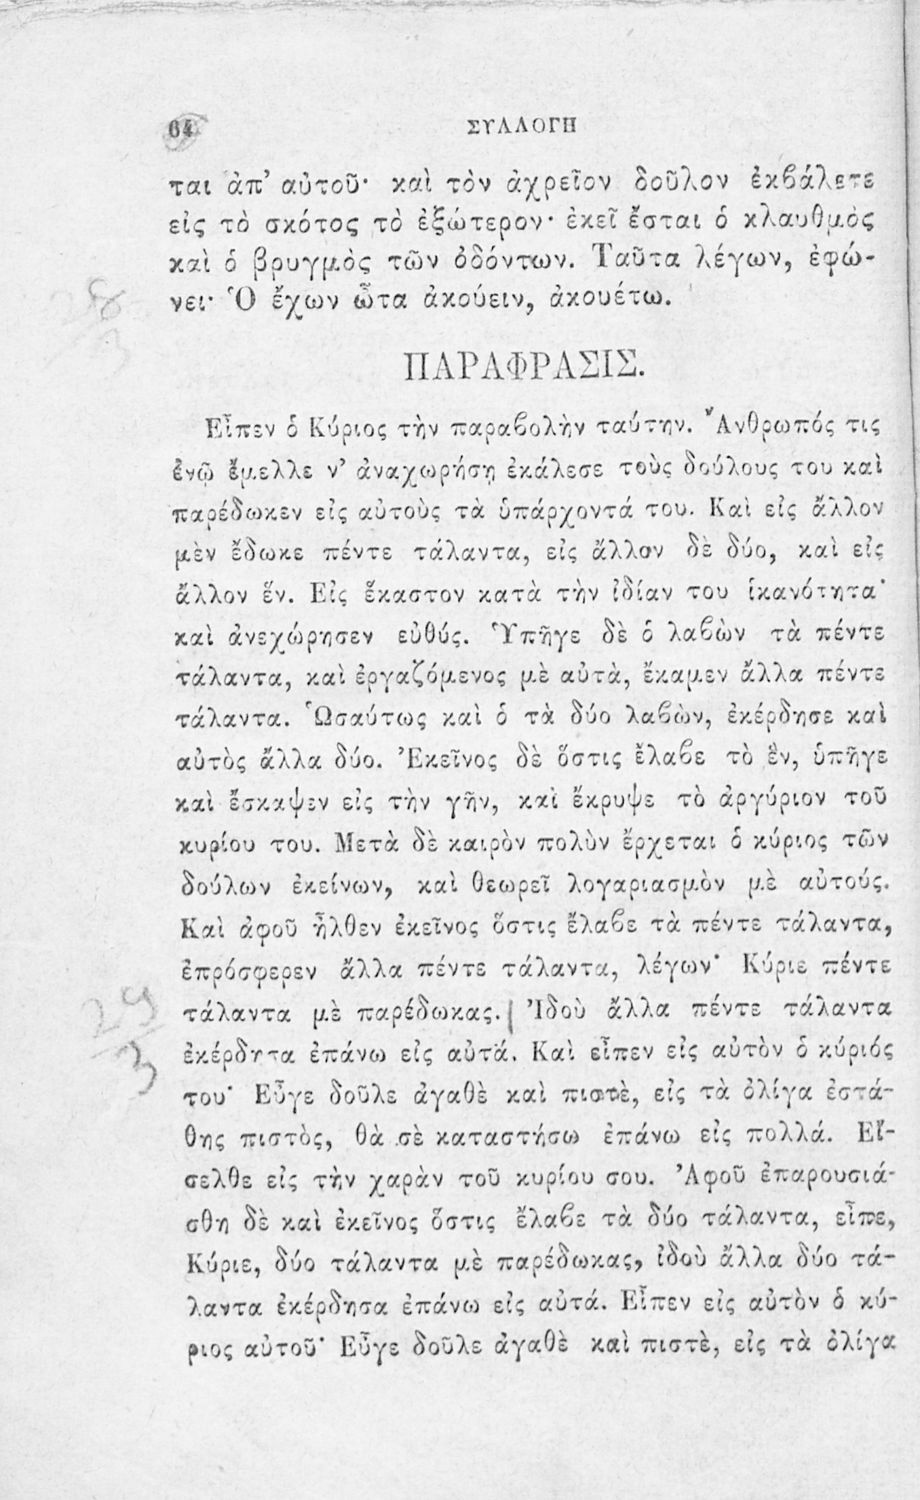 64 ΣΥΛΛΟΓΗ
ται ἀπ’ αὐτοῦ· καὶ τὸν ἀχρεῖον δοῦλον ἐκβάλετε
εἰς τὸ σκότος τὸ ἐξώτερον· ἐκεῖ ἔσται ὁ κλαυθμὸς
καὶ ὁ βρυγμὸς τῶν ὀδόντων. Ταῦτα λέγων, ἐφώ-
νει· Ὁ ἔχων ὦτα ἀκούειν, ἀκουέτω.
28
3
ΠΑΡΑΦΡΑΣΙΣ.
Εἶπεν ὁ Κύριος τὴν παραβολὴν ταύτην. Ἄνθρωπός τις
ἐνῷ ἔμελλε ν’ ἀναχωρήσῃ ἐκάλεσε τοὺς δούλους του καὶ
παρέδωκεν εἰς αὐτοὺς τὰ ὑπάρχοντά του. Καὶ εἰς ἄλλον
μὲν ἔδωκε πέντε τάλαντα, εἰς ἄλλον δὲ δύο, καὶ εἰς
ἄλλον ἕν. Εἰς ἕκαστον κατὰ τὴν ἰδίαν του ἱκανότητα·
καὶ ἀνεχώρησεν εὐθύς. Ὑπῆγε δὲ ὁ λαβὼν τὰ πέντε
τάλαντα, καὶ ἐργαζόμενος μὲ αὐτὰ, ἔκαμεν ἄλλα πέντε
τάλαντα. Ὡσαύτως καὶ ὁ τὰ δύο λαβὼν, ἐκέρδησε καὶ
αὐτὸς ἄλλα δύο. Ἐκεῖνος δὲ ὅστις ἔλαβε τὸ ἓν, ὑπῆγε
καὶ ἔσκαψεν εἰς τὴν γῆν, καὶ ἔκρυψε τὸ ἀργύριον τοῦ
κυρίου του. Μετὰ δὲ καιρὸν πολὺν ἔρχεται ὁ κύριος τῶν
δούλων ἐκείνων, καὶ θεωρεῖ λογαριασμὸν μὲ αὐτούς.
Καὶ ἀφοῦ ἦλθεν ἐκεῖνος ὅστις ἔλαβε τὰ πέντε τάλαντα,
ἐπρόσφερεν ἄλλα πέντε τάλαντα, λέγων· Κύριε πέντε
τάλαντα μὲ παρέδωκας. Ἰδοὺ ἄλλα πέντε τάλαντα
29
3
ἐκέρδητα ἐπάνω εἰς αὐτά. Καὶ εἶπεν εἰς αὐτὸν ὁ κύριός
του· Εὖγε δοῦλε ἀγαθὲ καὶ πιστὲ, εἰς τὰ ὀλίγα ἐστά-
θης πιστὸς, θὰ σὲ καταστήσω ἐπάνω εἰς πολλά. Εἴ-
σελθε εἰς τὴν χαρὰν τοῦ κυρίου σου. Ἀφοῦ ἐπαρουσιά-
σθη δὲ καὶ ἐκεῖνος ὅστις ἔλαβε τὰ δύο τάλαντα, εἶπε,
Κύριε, δύο τάλαντα μὲ παρέδωκας, ἰδοὺ ἄλλα δύο τά-
λαντα ἐκέρδησα ἐπάνω εἰς αὐτά. Εἶπεν εἰς αὐτὸν ὁ κύ-
ριος αὐτοῦ· Εὖγε δοῦλε ἀγαθὲ καὶ πιστὲ, εἰς τὰ ὀλίγα